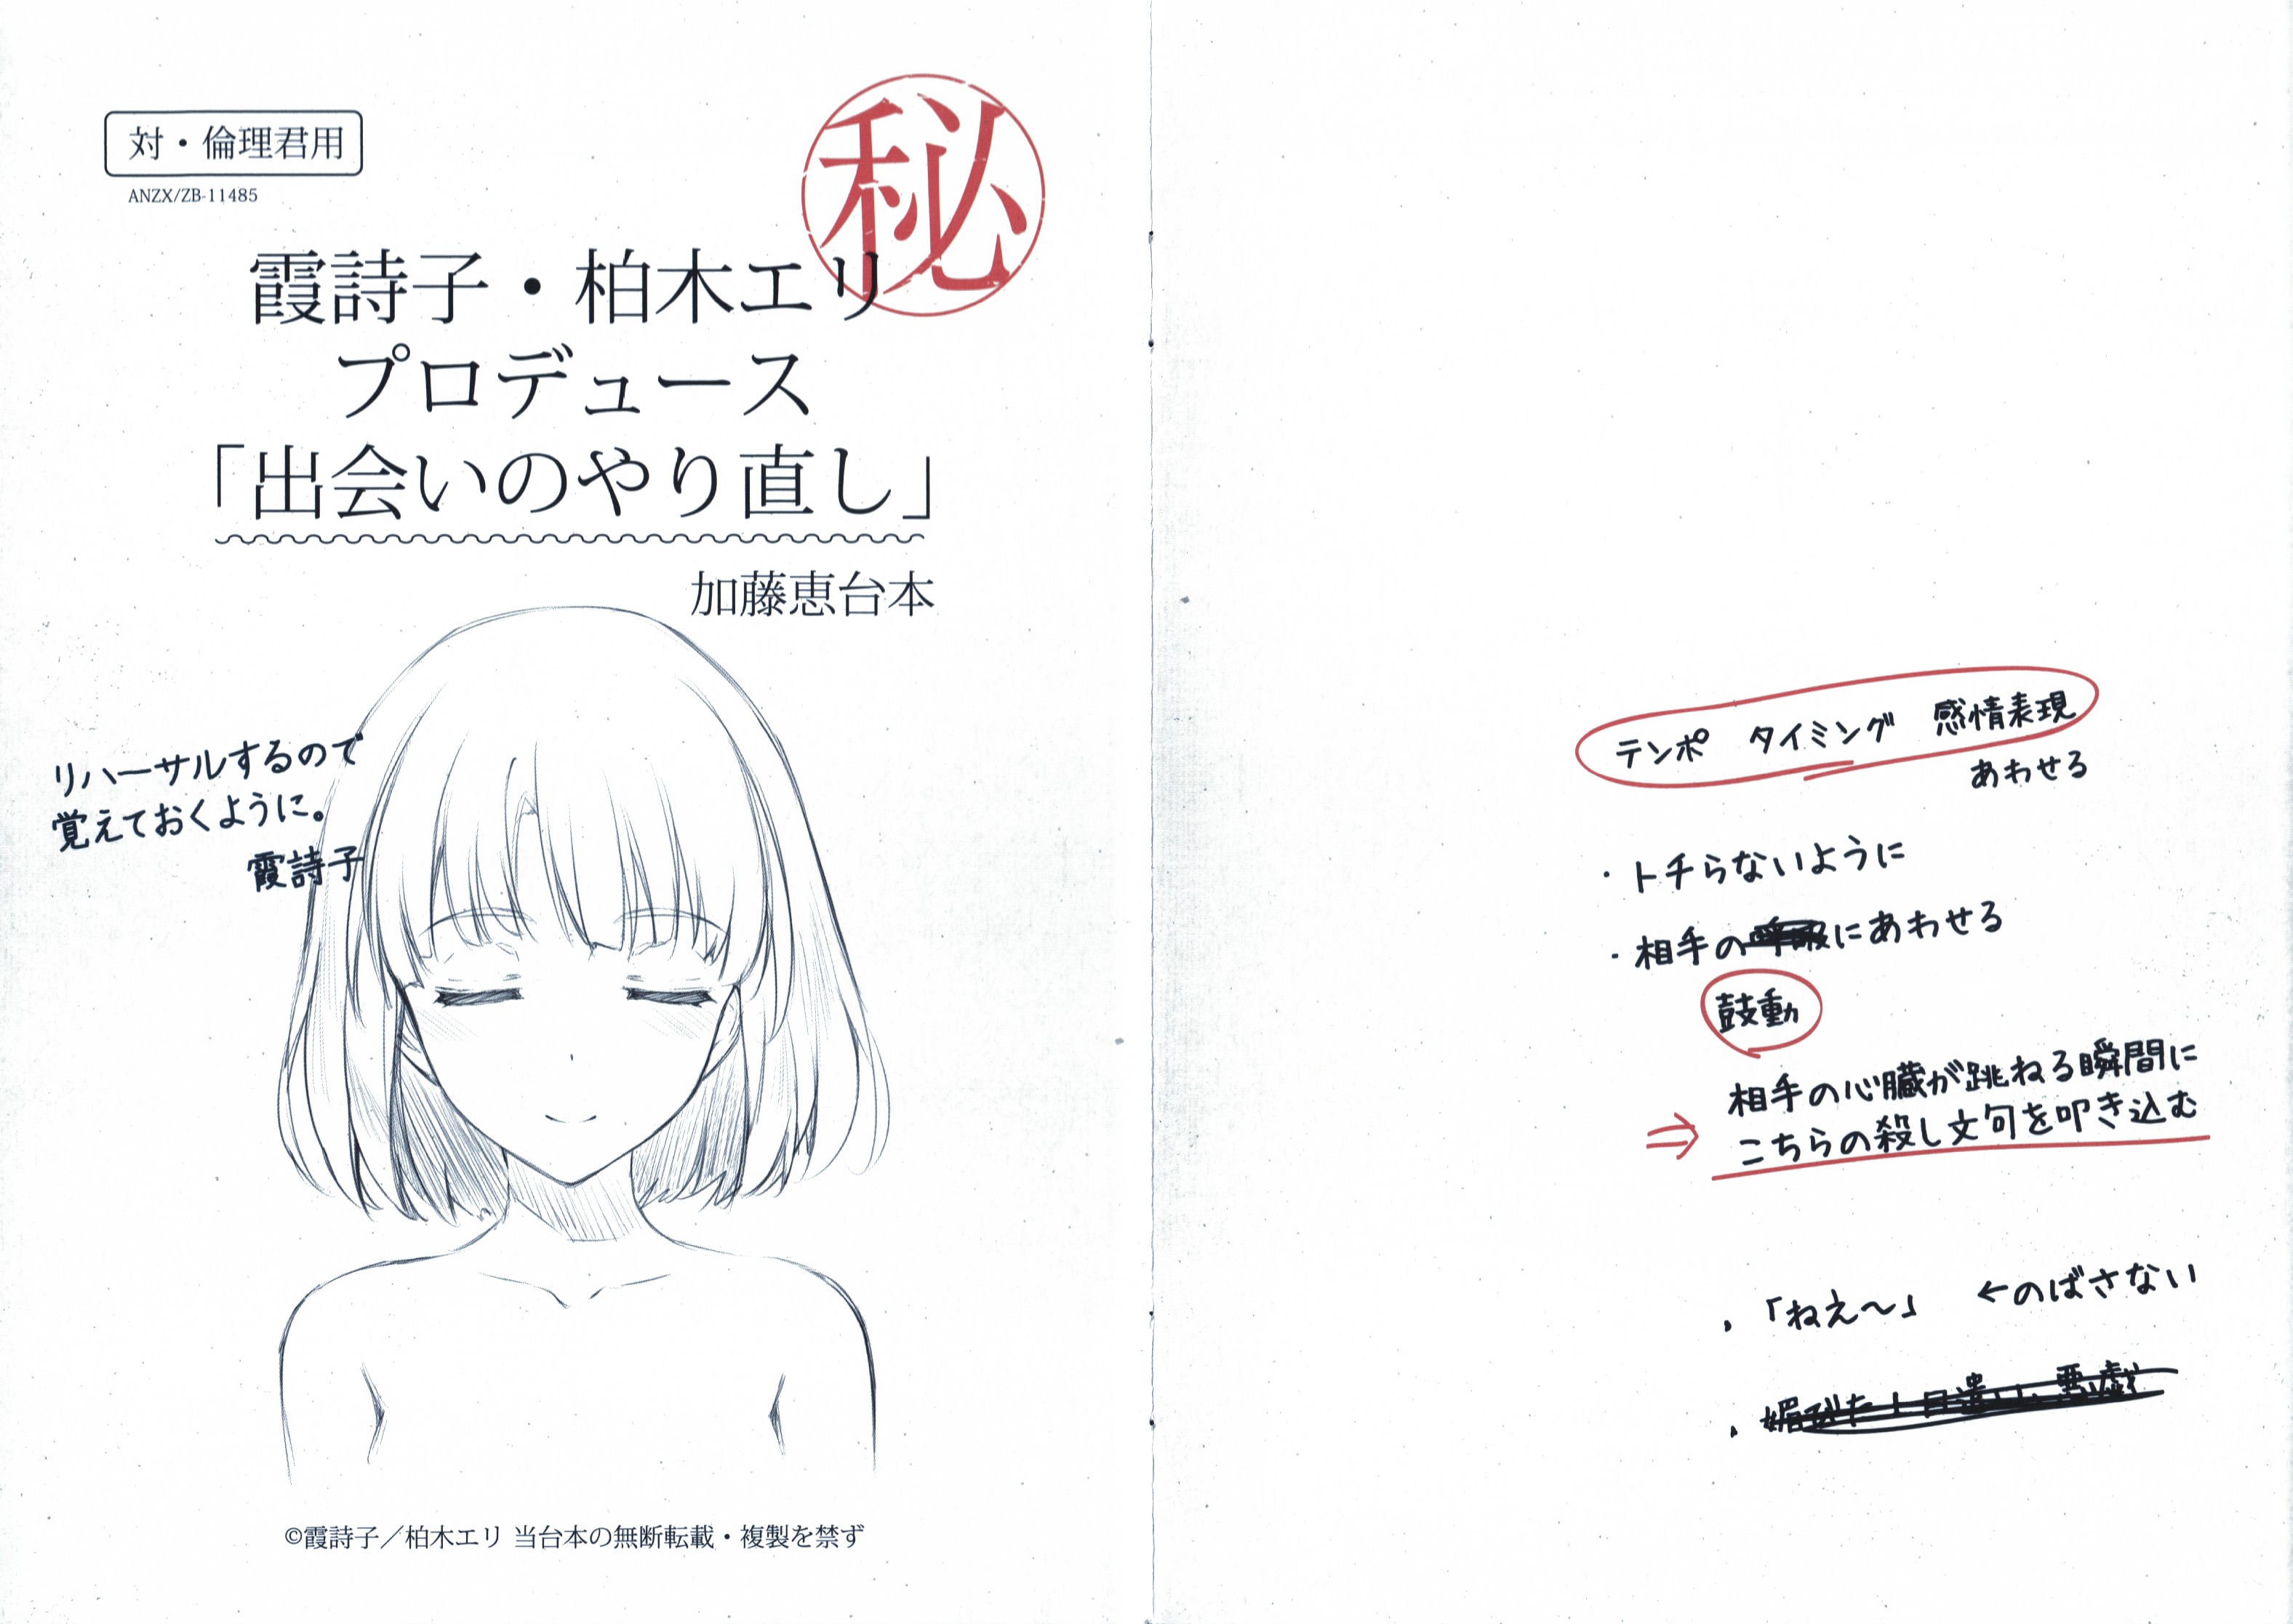 対・倫理君用
ANZX/ZB-11485
秘
霞詩子・柏木エリ
プロデュース
「出会いのやり直し」
加藤恵台本
リハーサルするので
覚えておくように。
霞詩子
©霞詩子／柏木エリ 当台本の無断転載・複製を禁ず
テンポ タイミング 感情表現
あわせる
・トチらないように
・相手の にあわせる
鼓動
⇒ 相手の心臓が跳ねる瞬間に
こちらの殺し文句を叩き込む
・「ねえ〜」 ←のばさない